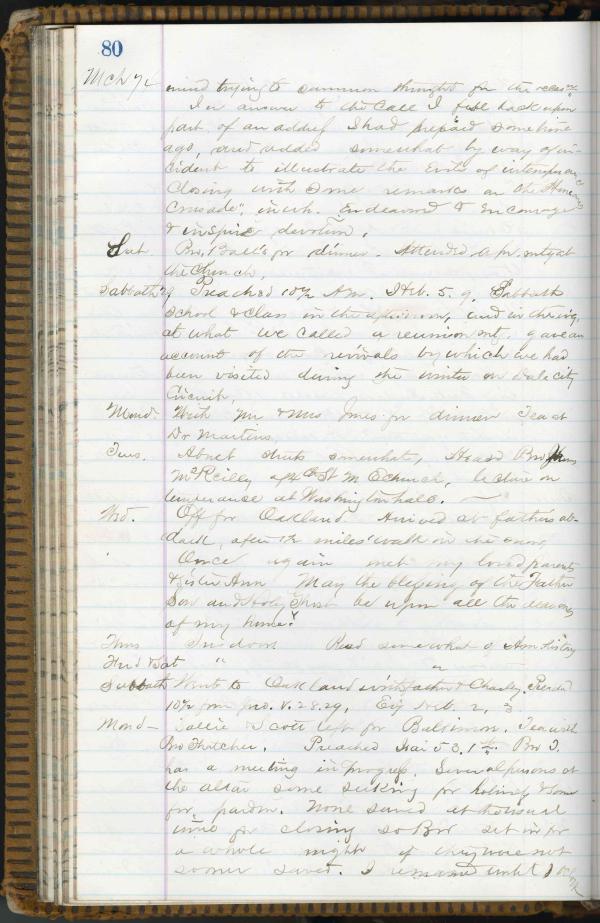 80
Mch 74 mind trying to summon thought for the
In answer to the Call I fell back upon
part of an address I had prepared sometime
ago, and added somewhat by way of in-
cident to illustrate the evils of intemperance
Closing with some remarks on the "Home
Crusade",  Endeavored to Encourage
& inspire devotion.
Sat Bro. Ball's for dinner. Attended
the Church.
Sabbath 29 Preached 10½ Am. Heb. 5. 9. Sabbath
School & Class in the afternoon, and in the eving,
at what we called a reunion mtg. gave an
account of the revivals by which we had
been visited during the winter on Dale City
Circuit.
Mond. With Mr & Mrs Jones for dinner Tea at
Dr Martins.
Tues. About streets somewhat, Heard Bro
McReilly of the St M E Church, lecture on
temperance at Washington hall. —
Wed. Off for Oakland Arrived at fathers ab-
dark, after 1½ miles' walk in the snow,
Once again met my loved parents
& Sister Ann May the blessing of the Father
Son and Holy Ghost be upon all the dear ones
of my home!
Thurs Indoors Read somewhat of Am History
Frid & Sat " "
Sabbath Went to Oakland with father & Charley Preachd
10½ from Jno. V. 28.29, Evg Heb. 2, 3
Mond — Sallie & Scott left for Baltimore. Tea with
Bro Thatcher. Preached Isai 53. 1 Bro T.
has a meeting in progress. Several persons at
the altar some seeking for holiness & some
for pardon. None saved at the usual
time for closing so Bro set in for
a whole night if they were not
sooner saved. I remained until 1 oclock